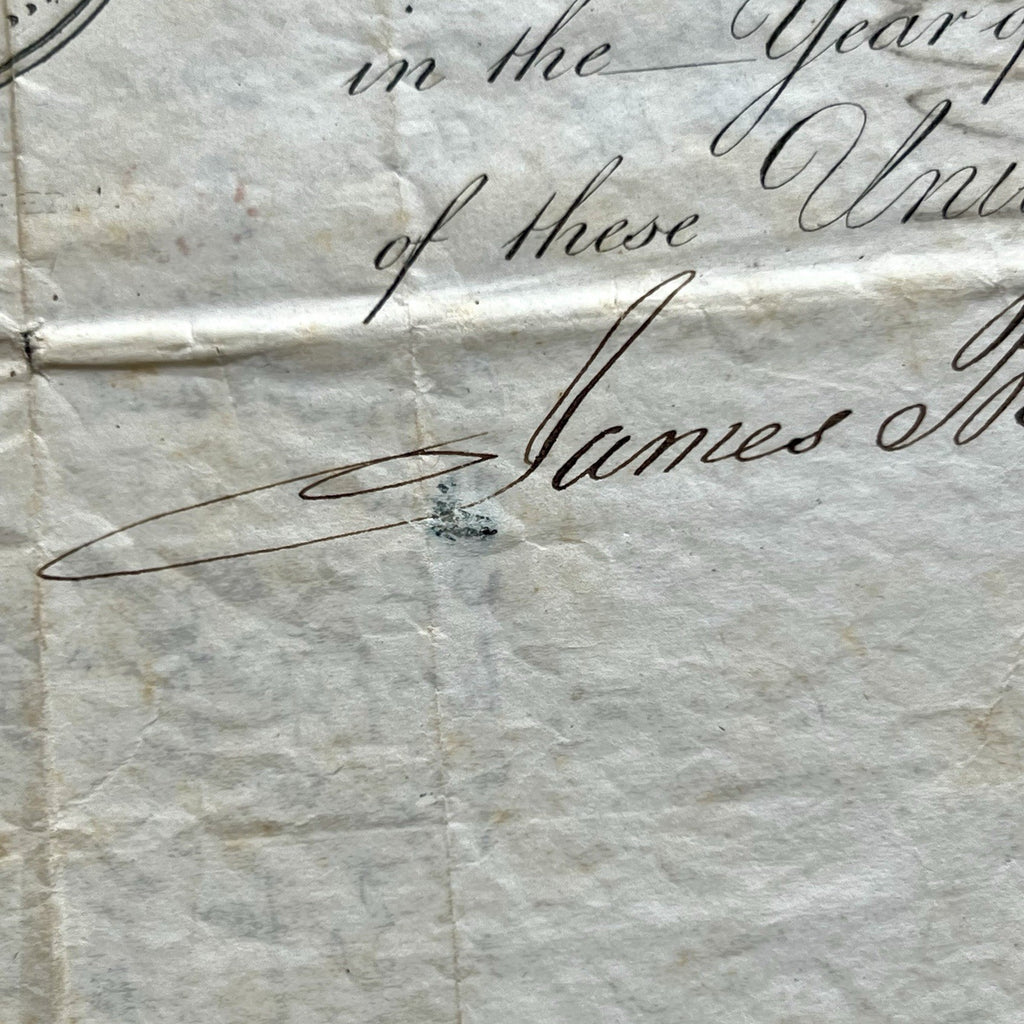 in the Year
of these
James